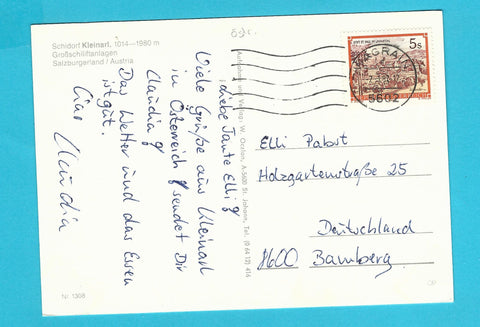 Schidorf Kleinarl, 1014—1980 m
Großschiffanlagen
Salzburgerland / Austria
Liebe Tante Elli!
Viele Grüße aus Kleinarl
in Österreich sendet Dir
Claudia
Das Wetter und das Essen
ist gut.
Claudia
Nr. 1308
Verlag: W. Oczlon, A-5600 St. Johann, Tel. (0 64 12) 414
5s
WAGRAIN
5602
Elli Pabst
Holzgartenstraße 25
Deutschland
8600 Bamberg